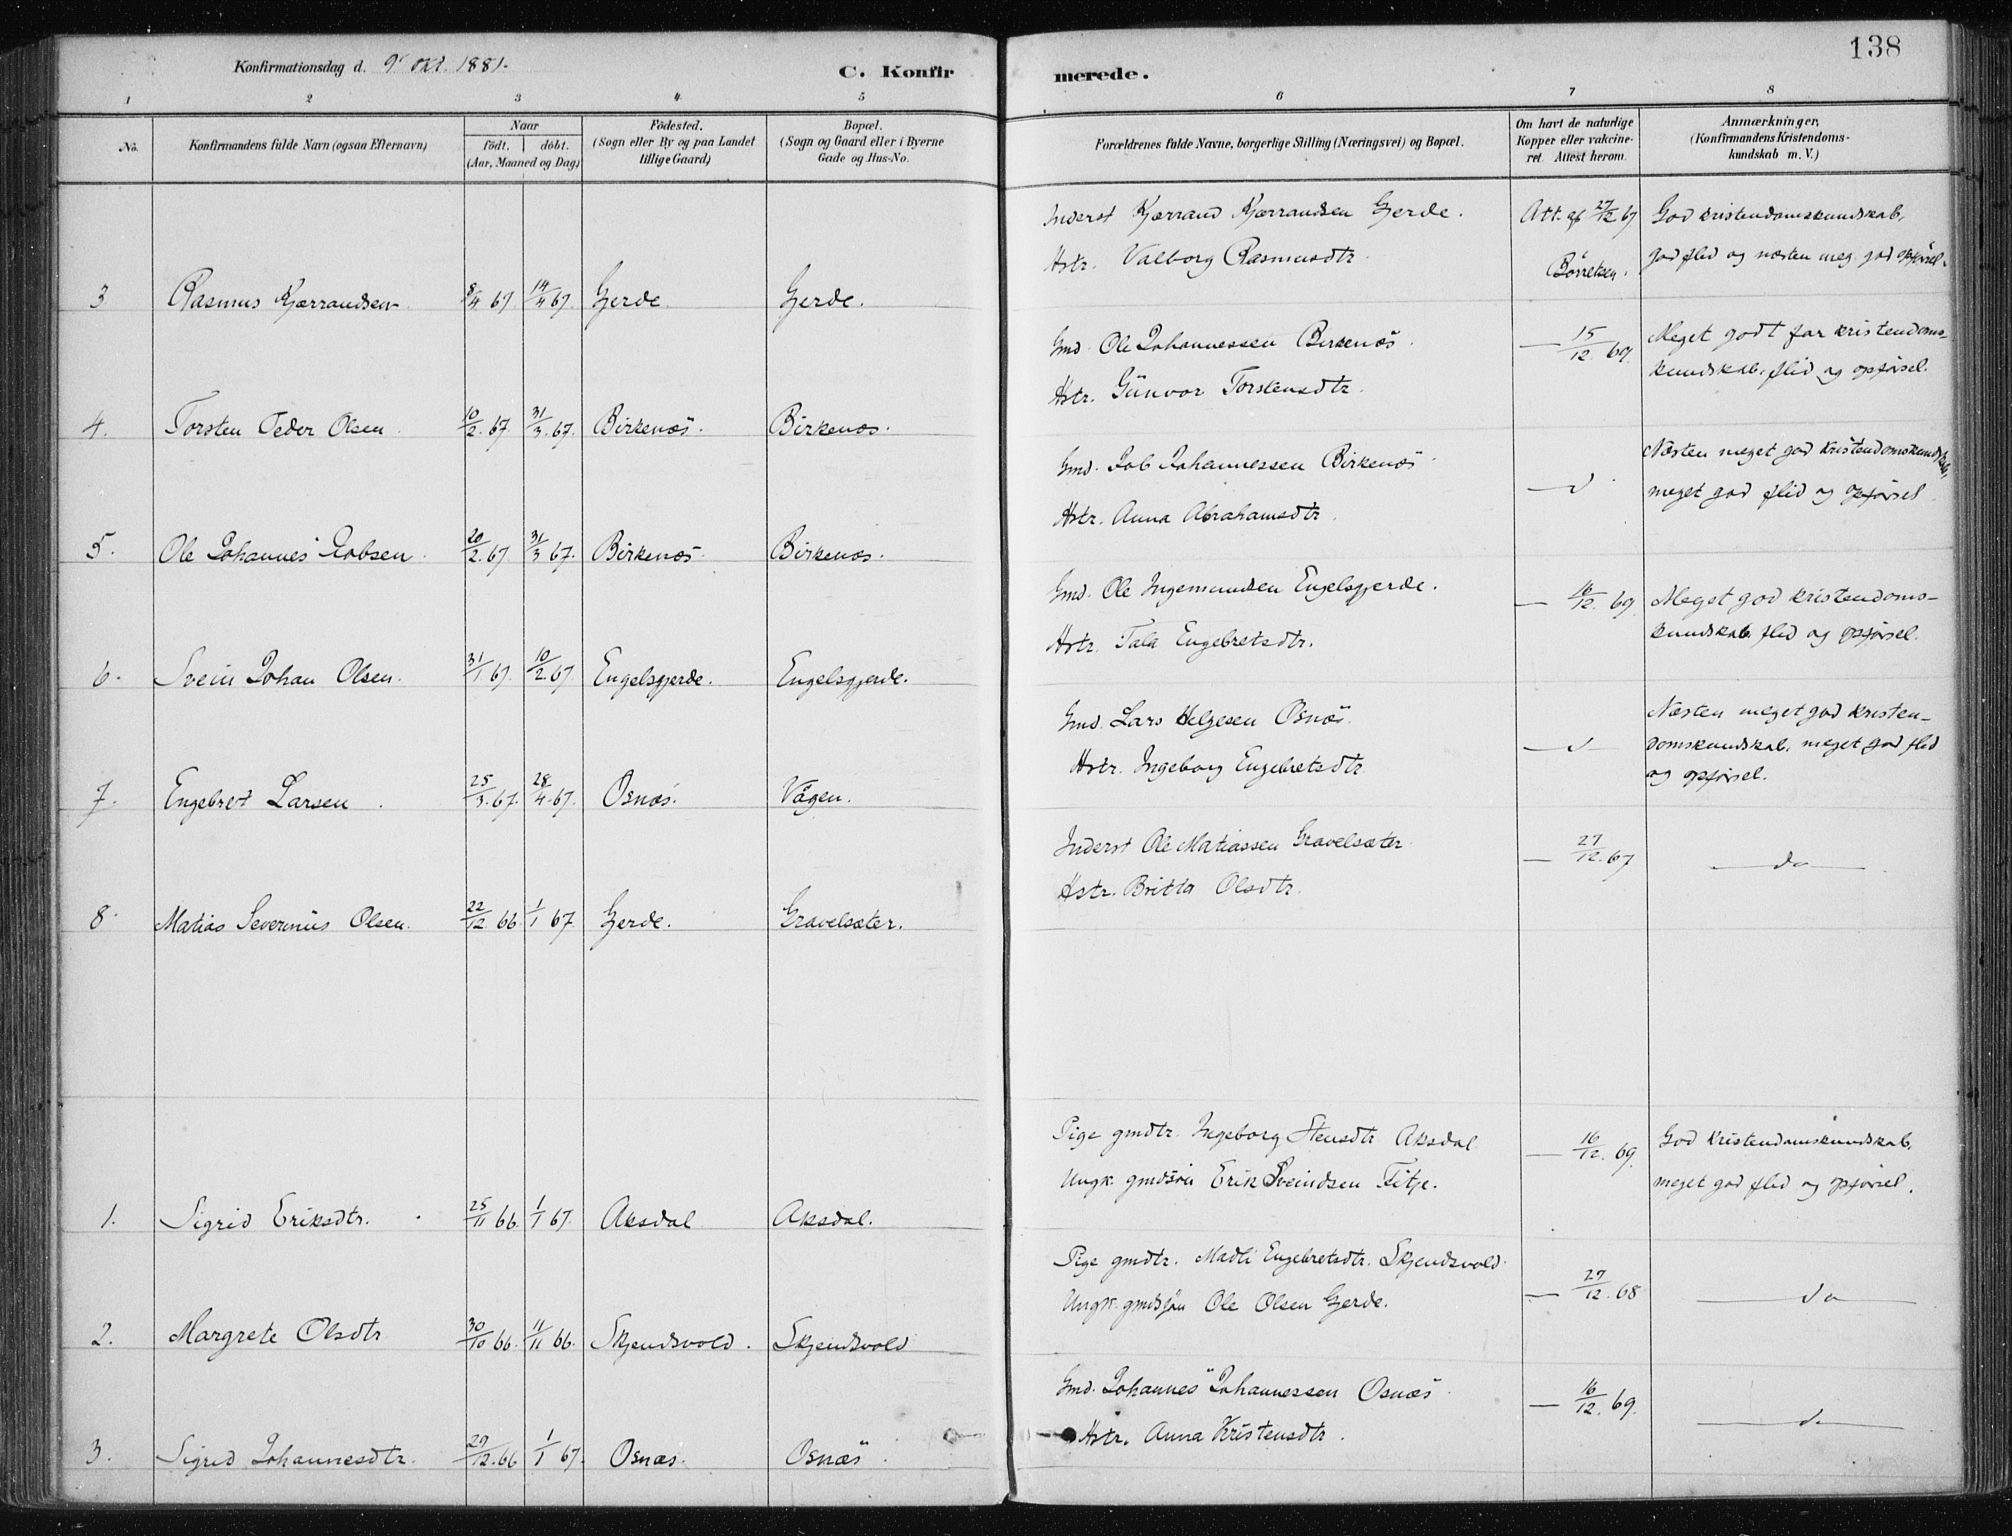 138
Konfirmationsdag d. 9de okt. 1881.
C. Konfirmerede.
1 2 3 4 5 6 7 8
No. Konfirmandens fulde Navn (ogsaa Efternavn) Naar födt. döbt. (Aar, Maaned og Dag) Födested. (Sogn eller By og paa Landet tillige Gaard) Bopæl. (Sogn og Gaard eller i Byerne Gade og Hus-No. Forældrenes fulde Navne, borgerlige Stilling (Næringsvei) og Bopæl. Om havt de naturlige Kopper eller vakcineret. Attest herom. Anmærkninger, (Konfirmandens Kristendomskundskab m. V.)
Inderst Kjærrand Kjærrandsen Gjerde. Att. af 27/12 67 God kristendomskundskab,
Hstr. Valborg Rasmusdtr. Börretsen. god flid og næsten meg. god opförsel.
3 Rasmus Kjærrandsen 8/4 67. 14/4 67. Gjerde. Gjerde.
Gmd. Ole Johannessen Birkenös. — 15/12. 69. Meget godt for kristendoms-
Hstr. Günvor Torstensdtr. kundskab, flid og opförsel.
4. Torsten Peder Olsen 10/2. 67. 31/3. 67. Birkenös. Birkenæs.
Gmd. Job Johannessen Birkenös. — " Næsten meget god kristendomskundskab,
Hstr. Anna Abrahamsdtr. meget god flid og opförsel.
5. Ole Johannes Jobsen. 20/2. 67. 31/3 67. Birkenæs. Birkenæs.
Gmd. Ole Ingemundsen Engelsgjerde. — 16/12. 69 Meget god kristendoms-
Hstr. Tala Engebretsdtr. kundskab, flid og opförsel.
6. Svein Johan Olsen. 31/1 67. 10/2 67. Engelsgjerde. Engelsgjerde.
Gmd. Lars Helgesen Osnæs. — " Næsten meget god kristen-
Hstr. Ingeborg Engebretsdtr. domskundskab, meget god flid
og opförsel.
7. Engebret Larsen. 25/3. 67. 28/4. 67. Osnæs. Vågen.
Inderst Ole Matiassen Gravelsæter. — 27/12. 67 — do —
Hstr. Britta Olsdtr.
8. Matias Severinus Olsen. 22/12 66. 1/1 67. Gjerde. Gravelsæter.
Pige gmdtr. Ingeborg Stensdtr. Aksdal — 16/12. 69. God kristendomskundskab,
Ungk. gmdsön Erik Sveindsen Fitje. meget god flid og opförsel.
1. Sigrid Eriksdtr. 25/11 66. 1/1 67. Aksdal Aksdal.
Pige gmdtr. Madli Engebretsdtr. Skjendsvold. — 27/12. 68 — do —
Ungk. gmdsön Ole Olsen Gjerde.
2. Margrete Olsdtr. 30/10 66. 11/11 66. Skjendsvold. Skjendsvold
Gmd. Johannes Johannessen Osnæs. — 16/12. 69. — do —
Hstr. Anna Kristensdtr.
3. Sigrid Johannesdtr. 29/12. 66 1/1 67. Osnæs. Osnæs.